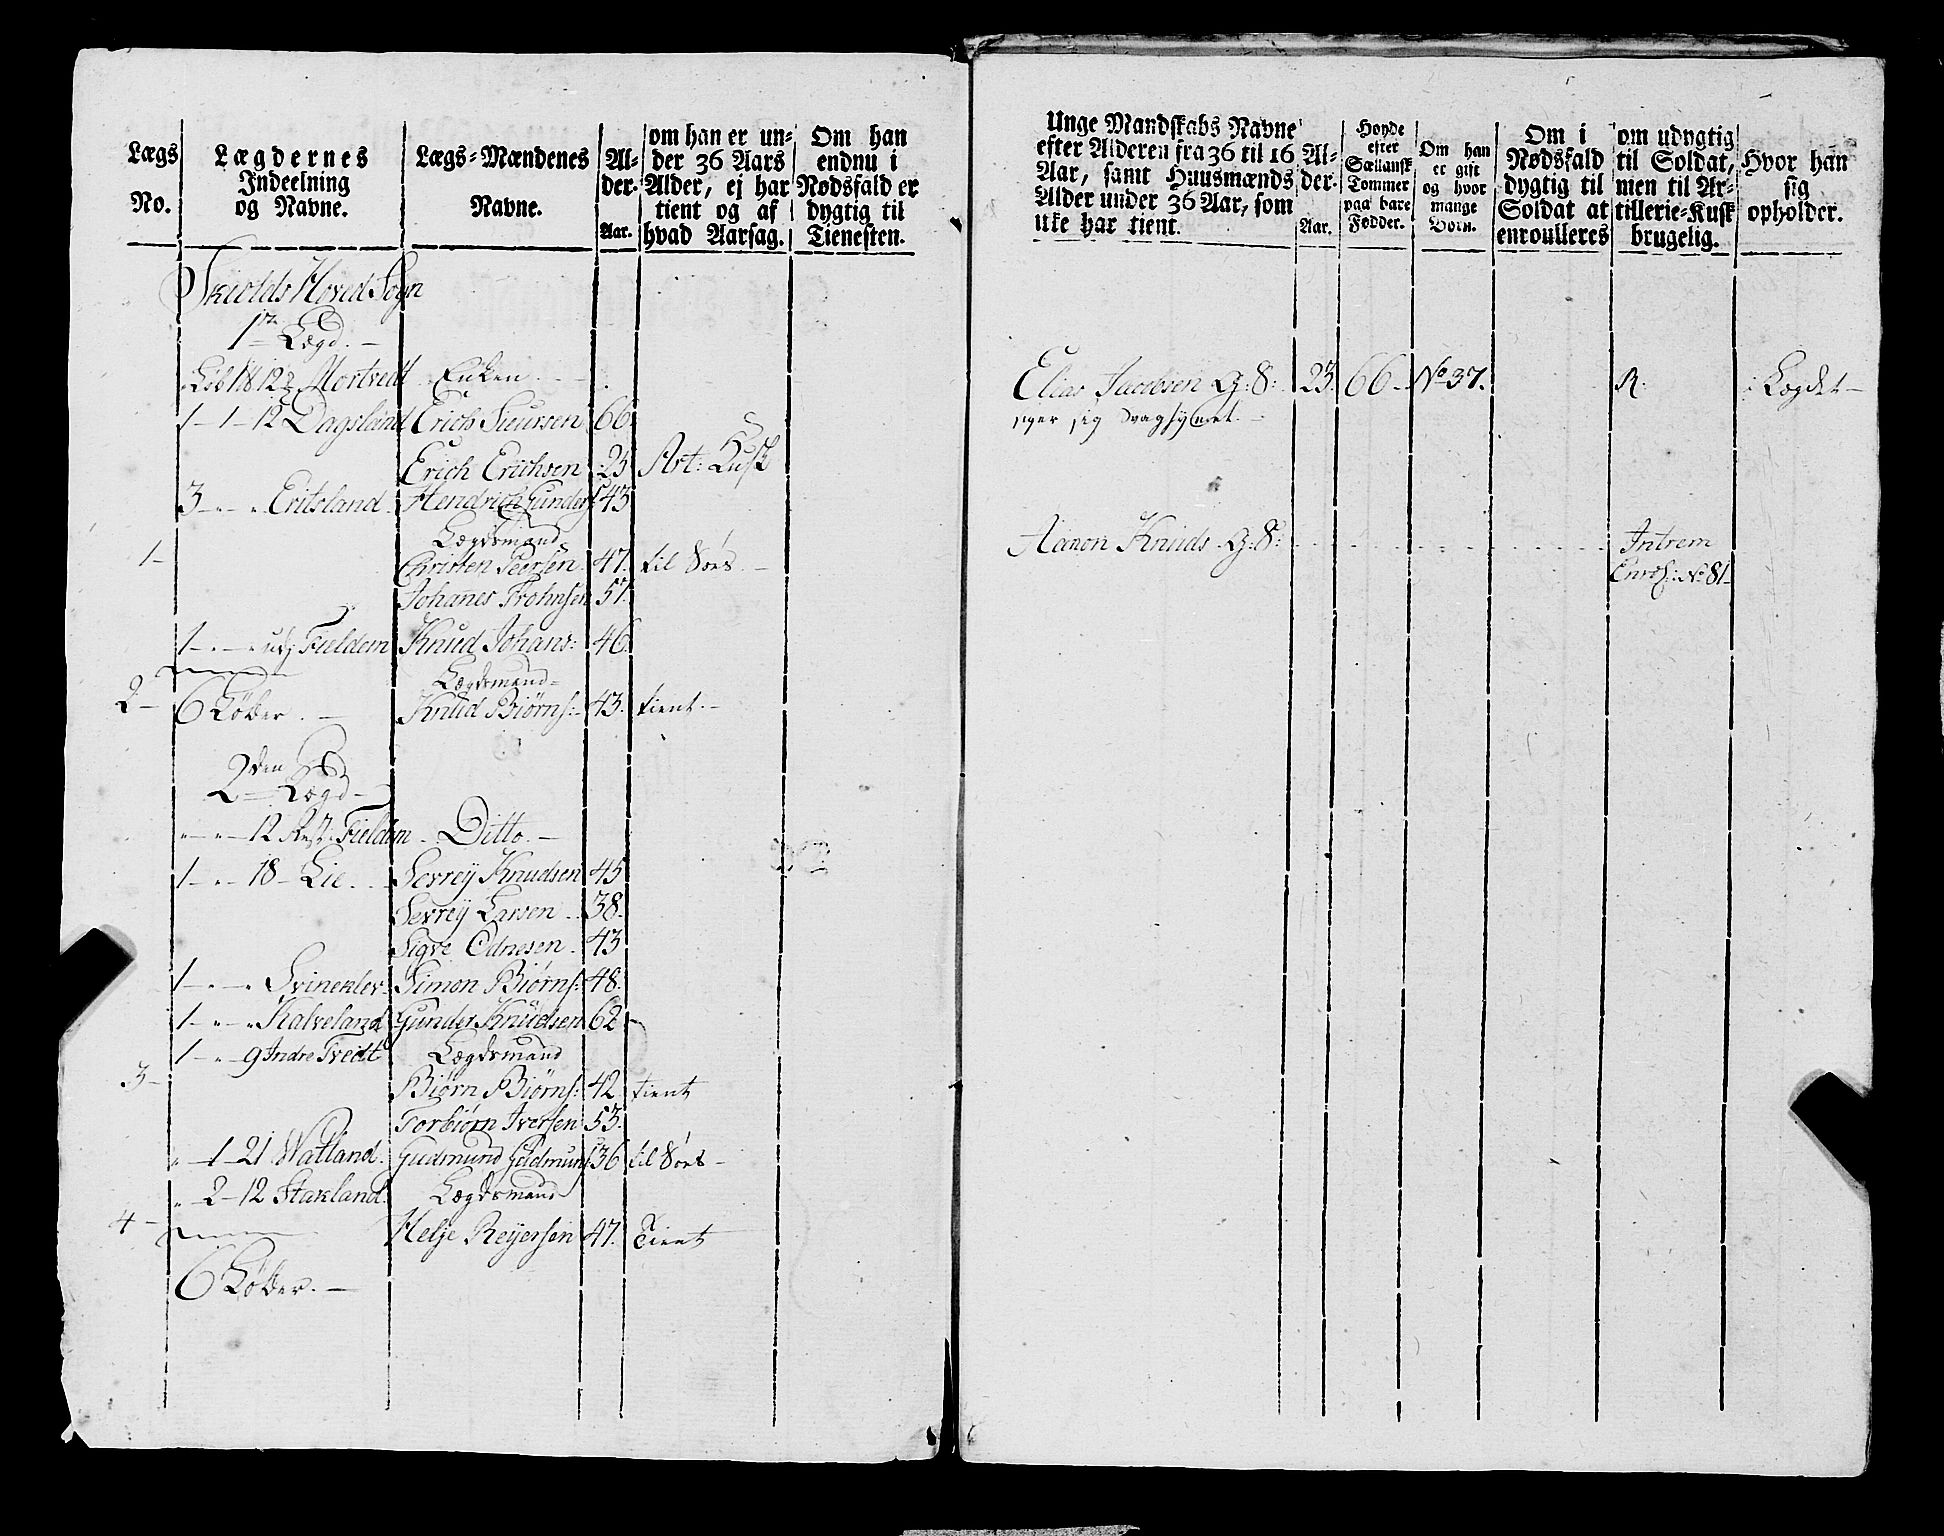 Lægs No.
Lægdernes Indeelning og Navne.
Lægs-Mændenes Navne.
Al-der. Aar.
om han er un-
der 36 Aars
Alder, ej har
tient og af
hvad Aarsag.
Om han
endnu i
Nødsfald er
dygtig til
Tienesten.
Skiolds Hoved Sogn
1te Lægd.
Løb 18 12 Mortvedt Enken
1-1-12 Dagsland Erich Siursen 66
Erich Erichsen 25 Art: Kusk
3 - " - " Eritsland Hendrich Gunders 43
Lægdsmand
1- Christen Peersen 47. til Søes.
Johanes Trohnsen 57.
1 - " - " udj Fieldem Knud Johans: 46.
Lægdsmand
2- 6 Løber. Knud Biørns: 43. tient.
2den Lægd
" - " - 12 Rest: Fieldem Ditto.
1 - " - 18 - Lie. Sevrey Knudsen 45
Sevrey Larsen 38.
Sigve Odnesen 43
1 - " - " Svineklev Simon Biørns: 48.
1 - " - " Kalveland Gunder Knudsen 62
1 - " 9 Indre Tvedt Lægdsmand
3- Biørn Biørns: 42 tient
Torbiørn Iversen 53.
" - 1 - 21 Watland. Gudmund Gudmuns 36 til Søes
" 2-12 Stakland Lægdsmand
4- Helje Reyersen 47. Tient
6 Løber.
Unge Mandskabs Navne
efter Alderen fra 36 til 16
Aar, samt Huusmænds
Alder under 36 Aar, som
ikke har tient.
Al-der. Aar.
Høyde
efter
Sællansk
Tommer
paa bare
Fødder.
Om han
er gift
og hvor
mange
Børn.
Om i
Nødsfald
dygtig til
Soldat at
enroulleres
om udygtig
til Soldat,
men til Ar-
tillerie-Kusk
brugelig.
Hvor han
sig
opholder.
Elias Jacobsen G: S: 23. 66 No 37. R: Lægdet
siger sig svagsynet.
Aanon Knuds. G: S: Intrem
Enrol: No 81